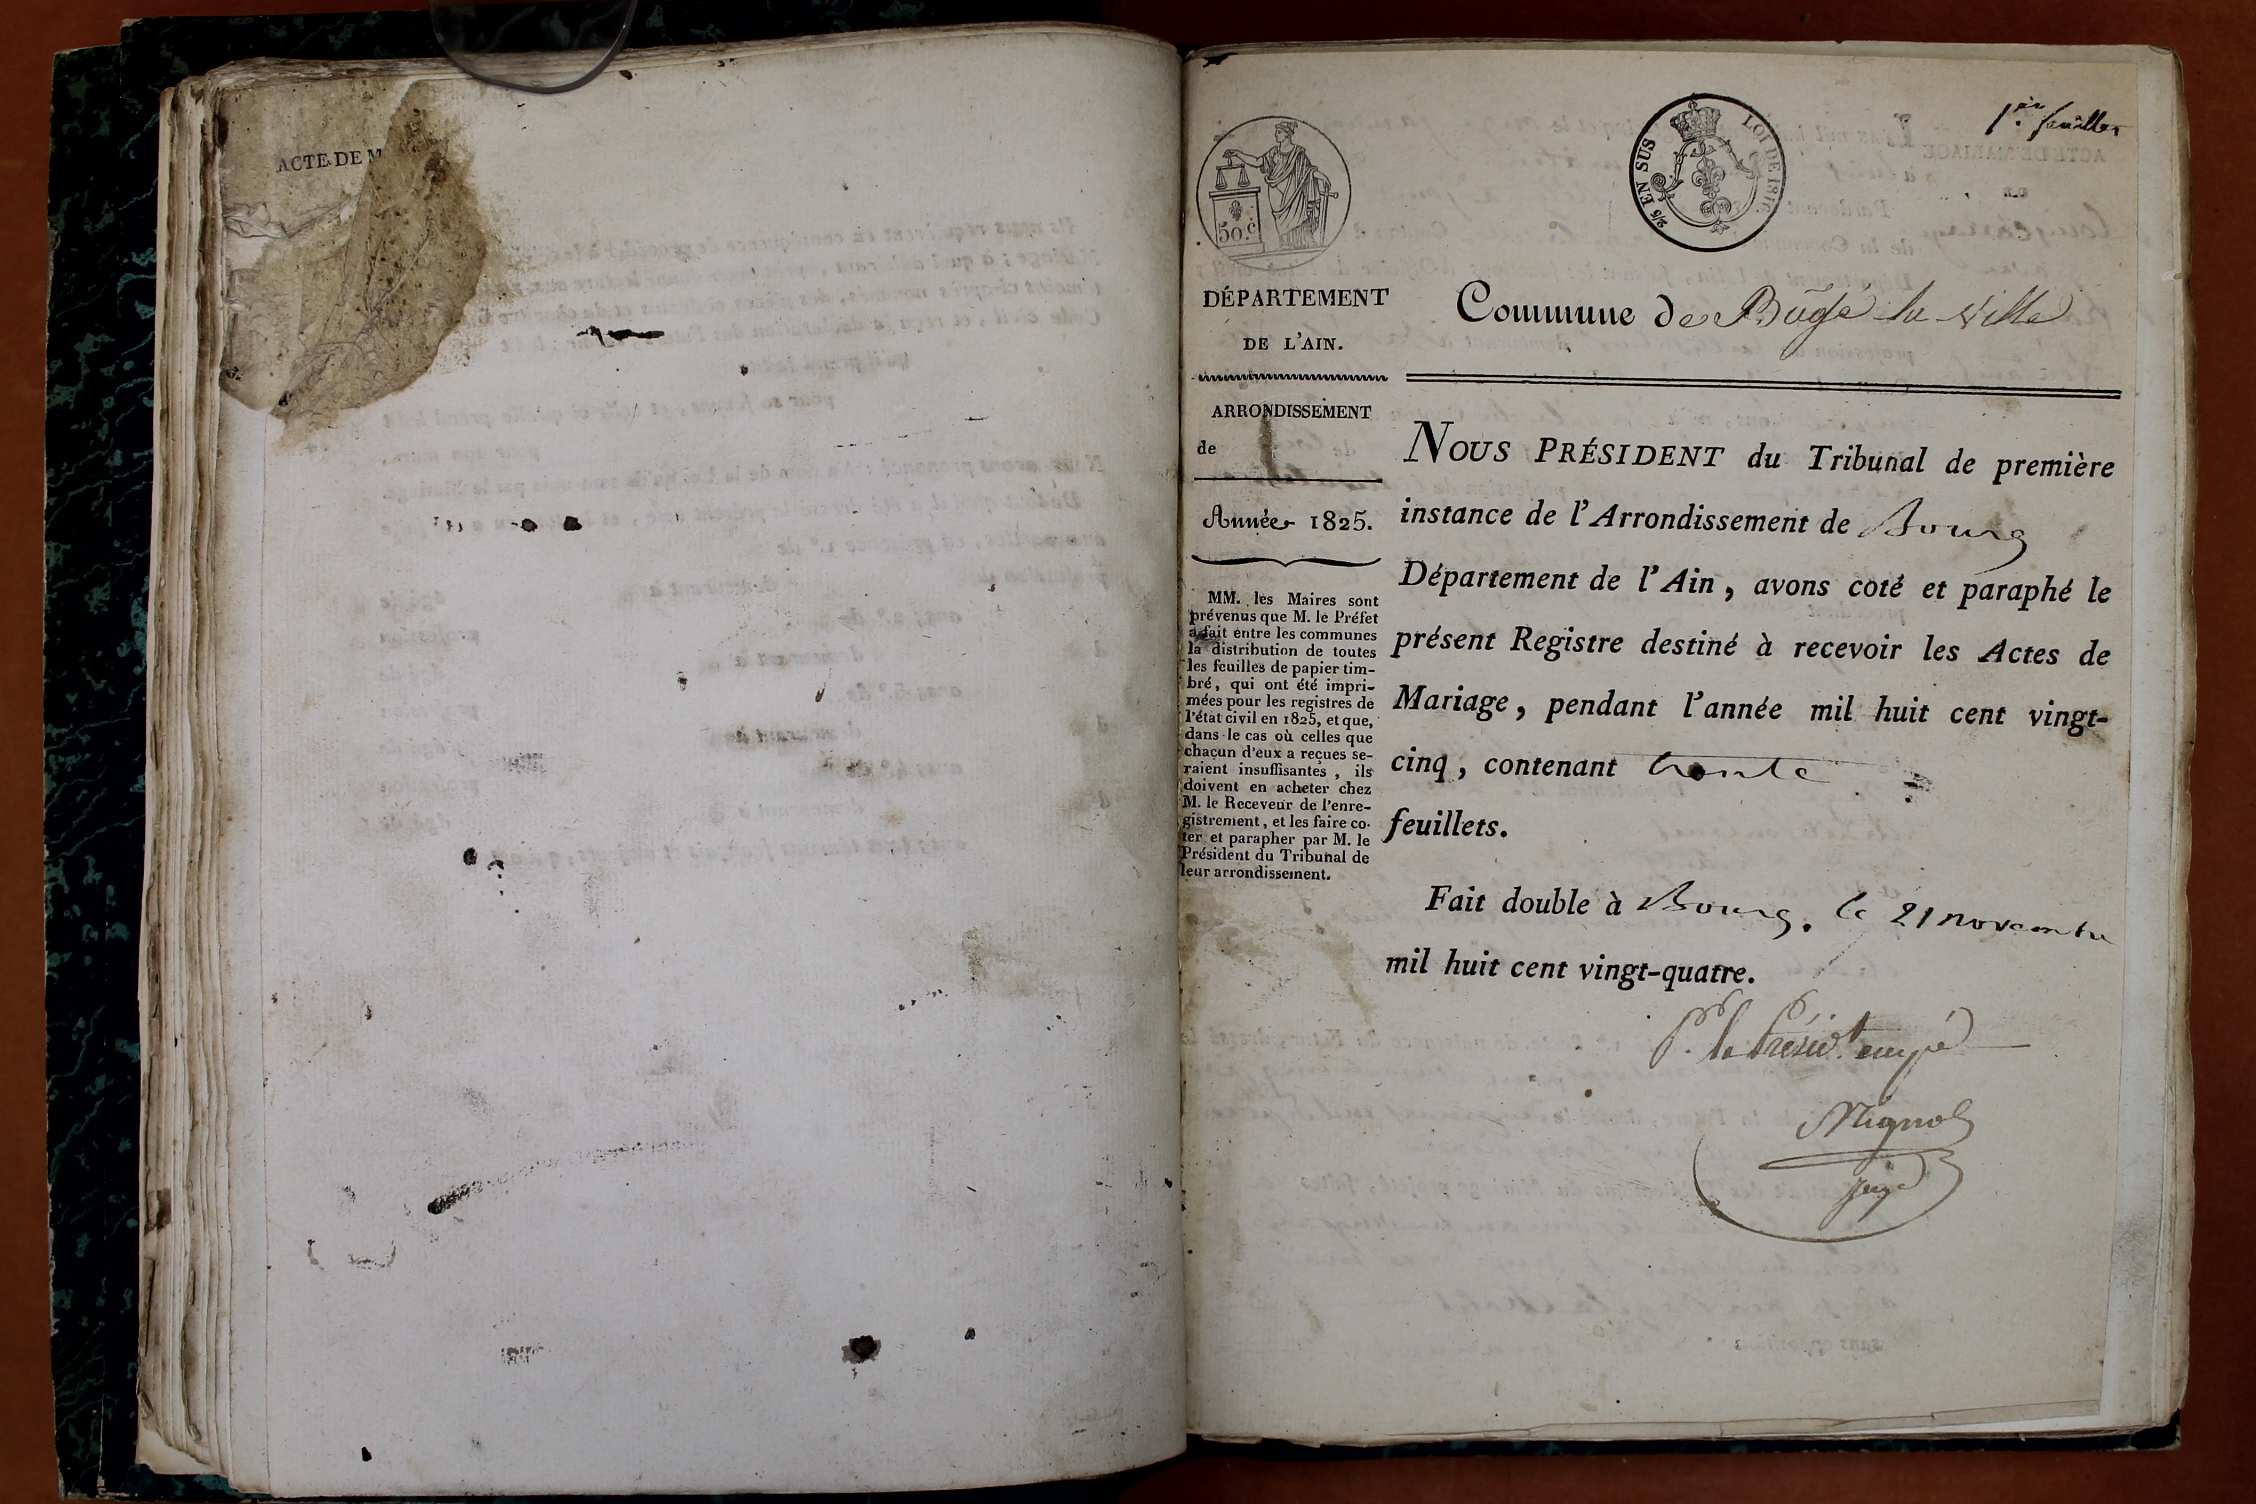 ACTE DE M
1.er feuillet
50.c
5/2 EN SUS
LOI DE 1816.
DÉPARTEMENT
DE L'AIN.
ARRONDISSEMENT
de
Année 1825.
MM. les Maires sont
prévenus que M. le Préfet
a fait entre les communes
la distribution de toutes
les feuilles de papier tim-
bré, qui ont été impri-
mées pour les registres de
l'état civil en 1825, et que,
dans le cas où celles que
chacun d'eux a reçues se-
raient insuffisantes, ils
doivent en acheter chez
M. le Receveur de l'enre-
gistrement, et les faire co-
ter et parapher par M. le
Président du Tribunal de
leur arrondissement.
Commune de Bâgé la ville
NOUS PRÉSIDENT du Tribunal de première
instance de l'Arrondissement de Bourg
Département de l'Ain, avons coté et paraphé le
présent Registre destiné à recevoir les Actes de
Mariage, pendant l'année mil huit cent vingt-
cinq, contenant trente
feuillets.
Fait double à Bourg. le 21 novembre
mil huit cent vingt-quatre.
Pr. le Présidt. empé
Mignot
juge